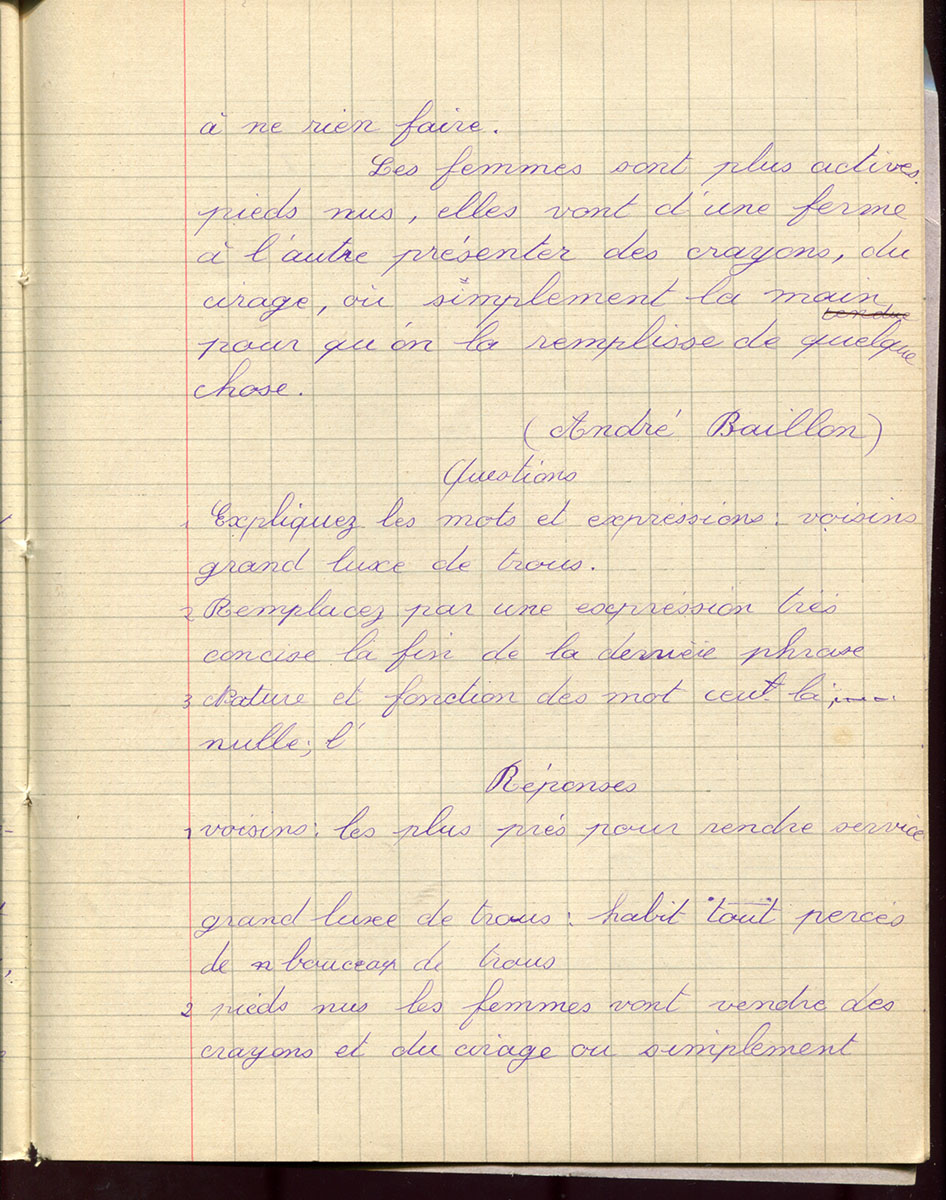 à ne rien faire.
Les femmes sont plus actives.
pieds nus, elles vont d'une ferme
à l'autre présenter des crayons, du
cirage, ou simplement la main
tendre
pour qu'on la remplisse de quelque
chose.
(André Baillon)
Questions
1 Expliquez les mots et expressions: voisins
grand luxe de trous.
2 Remplacez par une expression très
concise la fin de la dernière phrase
3 Nature et fonction des mot ceux la;
nulle; l'
Réponses
1 voisins: les plus près pour rendre service
grand luxe de trous: habit tout percés
de boucoap de trous
2 pieds nus les femmes vont vendre des
crayons et du cirage ou simplement